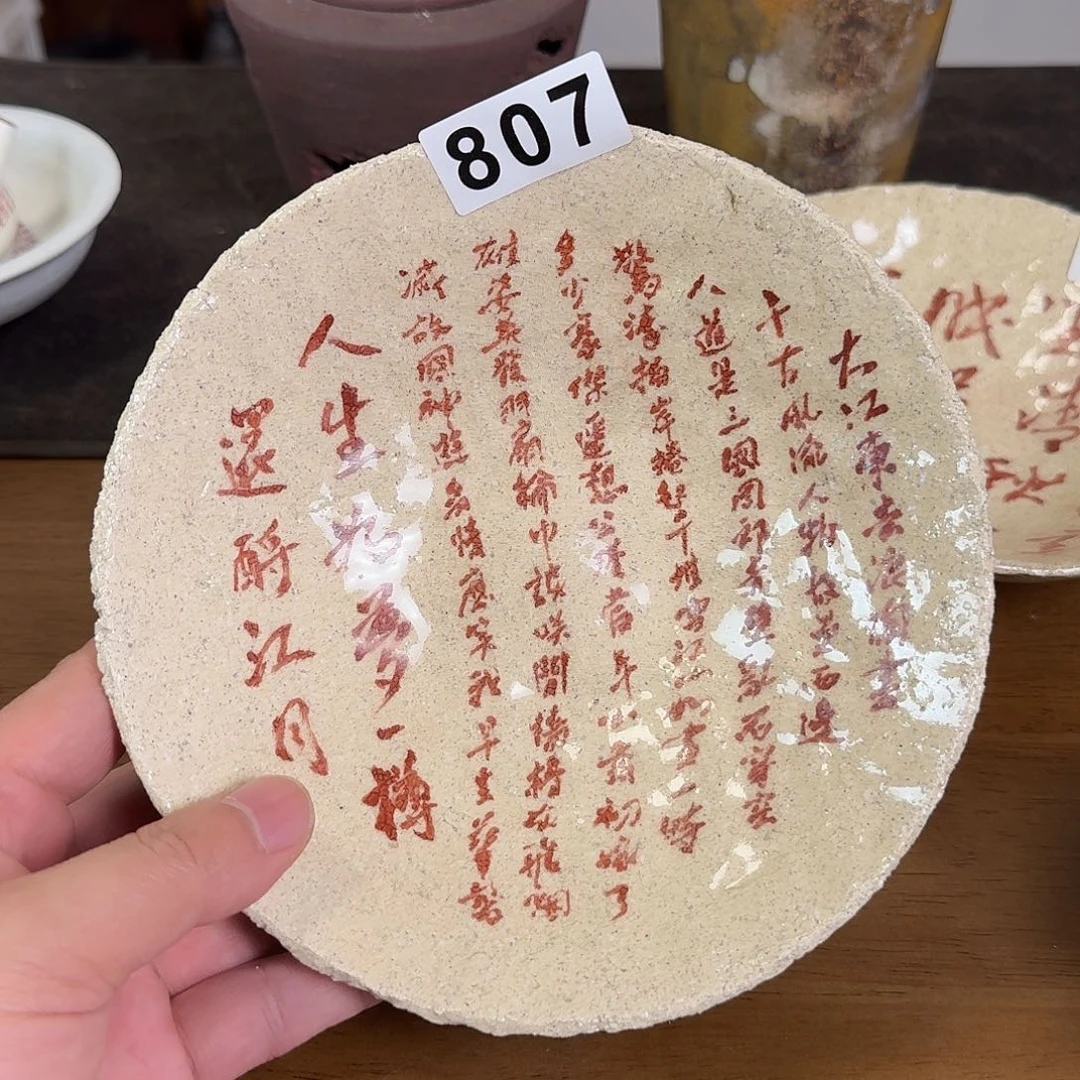 807
大江東去浪濤盡
千古風流人物故壘西邊
人道是三國周郎赤壁亂石
驚濤拍岸捲起千堆雪江山如畫一時
多少豪傑遙想公瑾當年小喬初嫁了
雄姿英發羽扇綸巾談笑間檣櫓灰飛烟
滅故國神遊多情應笑我早生華髮
人生如夢一樽
還酹江月